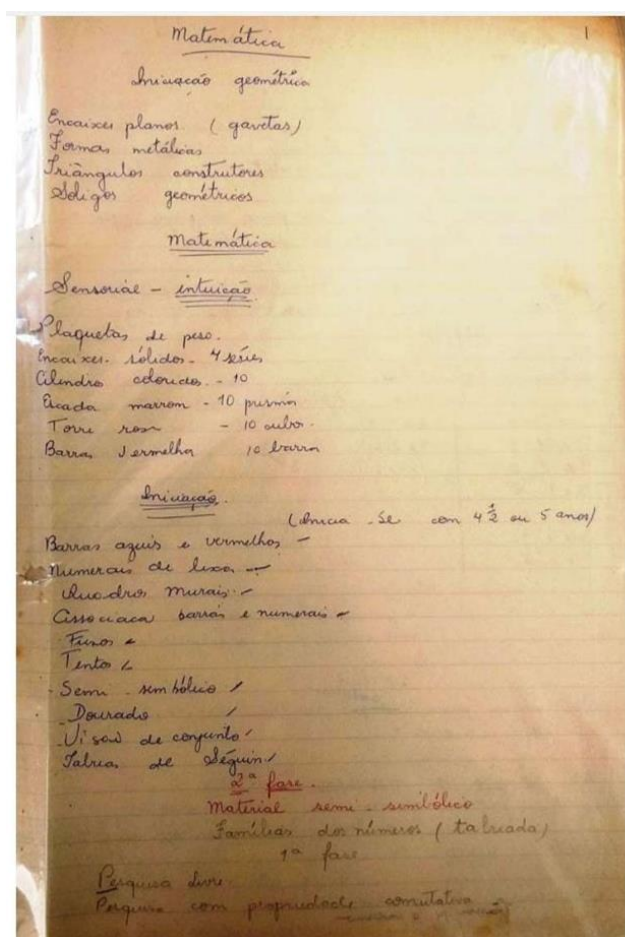 1
Matemática
Iniciação geométrica
Encaixes planos. (gavetas)
Formas metálicas
Triângulos construtores
Soligos geométricos
Matemática
Sensorial - intuição
Plaquetas de peso.
Encaixes. sólidos - 4 séries
Cilindro coloridos. - 10
Escada marrom - 10 prismas
Torre rosa - 10 cubos
Barras Vermelha 10 barras
Iniciação.
(Inicia - se com 4 1/2 ou 5 anos)
Barras azuis e vermelhas -
Numerais de lixa -
Quadros murais -
Associaca barras e numerais -
Fusos
Tento
Semi - simbólico /
Dourado /
Visão de conjunto /
Tabuas de Séguin /
2ª fase.
Material semi - simbólico
Famílias dos números (tabuada)
1ª fase
Pesquisa livre.
Pesquisa com propriedade comutativa